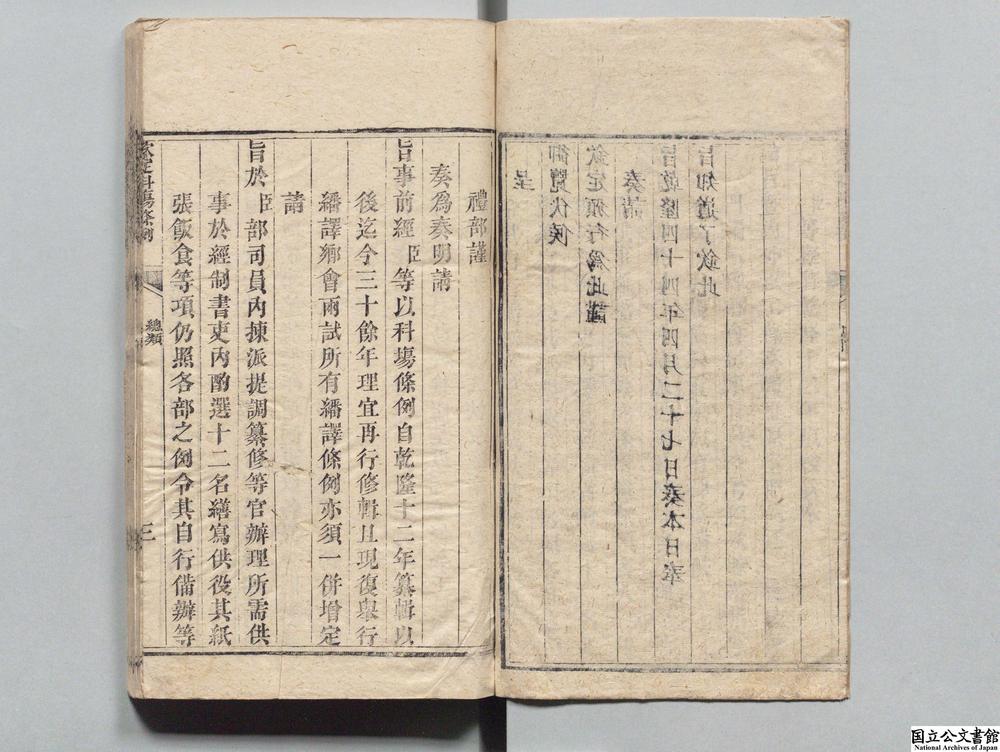 呈
御覽伏候
欽定頒行為此謹
奏請
旨乾隆四十四年四月二十七日奏本日奉
旨知道了欽此
禮部謹
奏為奏明請
旨事前經臣等以科場條例自乾隆十二年纂輯以
後迄今三十餘年理宜再行修輯且現復舉行
繙譯鄉會兩試所有繙譯條例亦須一併增定
請
旨於臣部司員內揀派提調纂修等官辦理所需供
事於經制書吏內酌選十二名繕寫供役其紙
張飯食等項仍照各部之例令其自行備辦等
欽定科場條例 總類 三
国立公文書館
National Archives of Japan